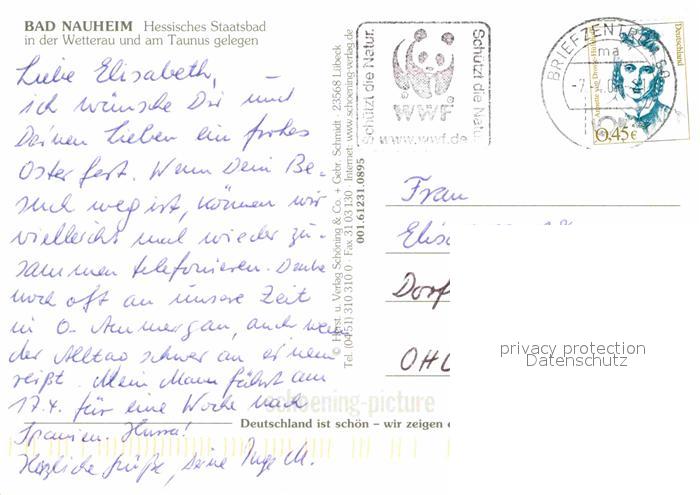 BAD NAUHEIM Hessisches Staatsbad
in der Wetterau und am Taunus gelegen
Liebe Elisabeth,
ich wünsche Dir und
Deinen Lieben ein frohes
Osterfest. Wenn Dein Be-
such weg ist, können wir
vielleicht mal wieder zu-
sammen telefonieren. Denke
noch oft an unsere Zeit
in O. Ammergau, auch wenn
der Alltag schwer an einem
reißt. Mein Mann fährt am
17.4. für eine Woche nach
Spanien. Hurra!
Herzliche Grüße, Deine Inge M.
© Horst u. Verlag Schöning & Co. + Gebr. Schmidt · 23568 Lübeck
Tel. (0451) 310 310 0 · Fax 31 03 130 · Internet: www.schoening-verlag.de
001.61231.0895
schoening-picture
Deutschland ist schön – wir zeigen e
Schützt die Natur.
WWF
®
www.wwf.de
Schützt die Natu
BRIEFZENTRUM 60
ma
Annette von Droste-Hülshoff
Deutschland
0,45€
Frau
Elis
Dorf
privacy protection
Datenschutz